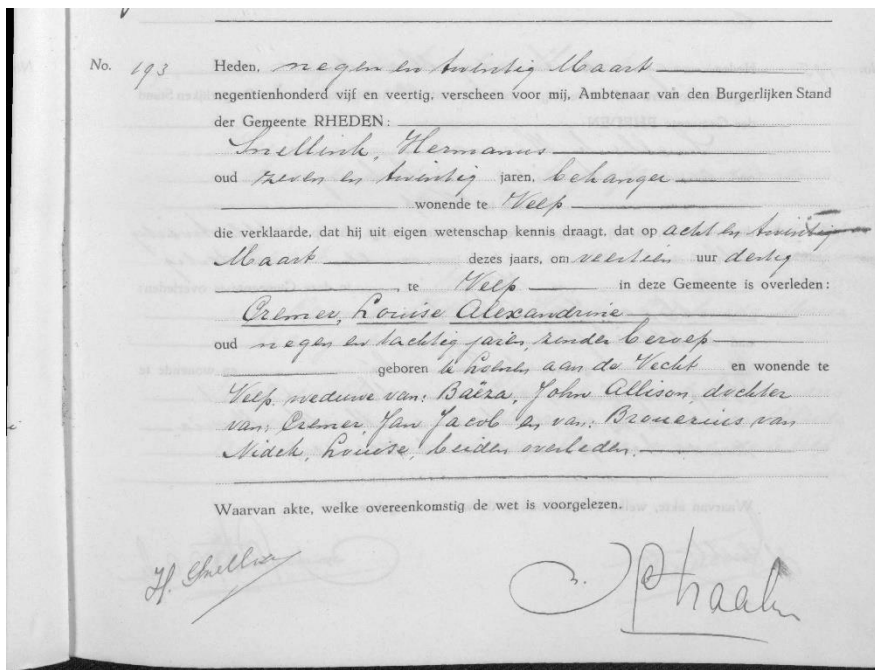 No. 193 Heden, negen en twintig Maart
negentienhonderd vijf en veertig, verscheen voor mij, Ambtenaar van den Burgerlijken Stand
der Gemeente RHEDEN:
Snellink, Hermanus
oud zeven en twintig jaren, behanger
wonende te Velp
die verklaarde, dat hij uit eigen wetenschap kennis draagt, dat op acht en twintig
Maart dezes jaars, om veertien uur dertig
, te Velp in deze Gemeente is overleden:
Cremer, Louise Alexandrine
oud negen en tachtig jaren, zonder beroep
geboren te Loenen aan de Vecht en wonende te
Velp weduwe van: Baëza, John Allison, dochter
van: Cremer, Jan Jacob en van: Brouerius van
Nidek, Louise, beiden overleden.
Waarvan akte, welke overeenkomstig de wet is voorgelezen.
H. Snellink